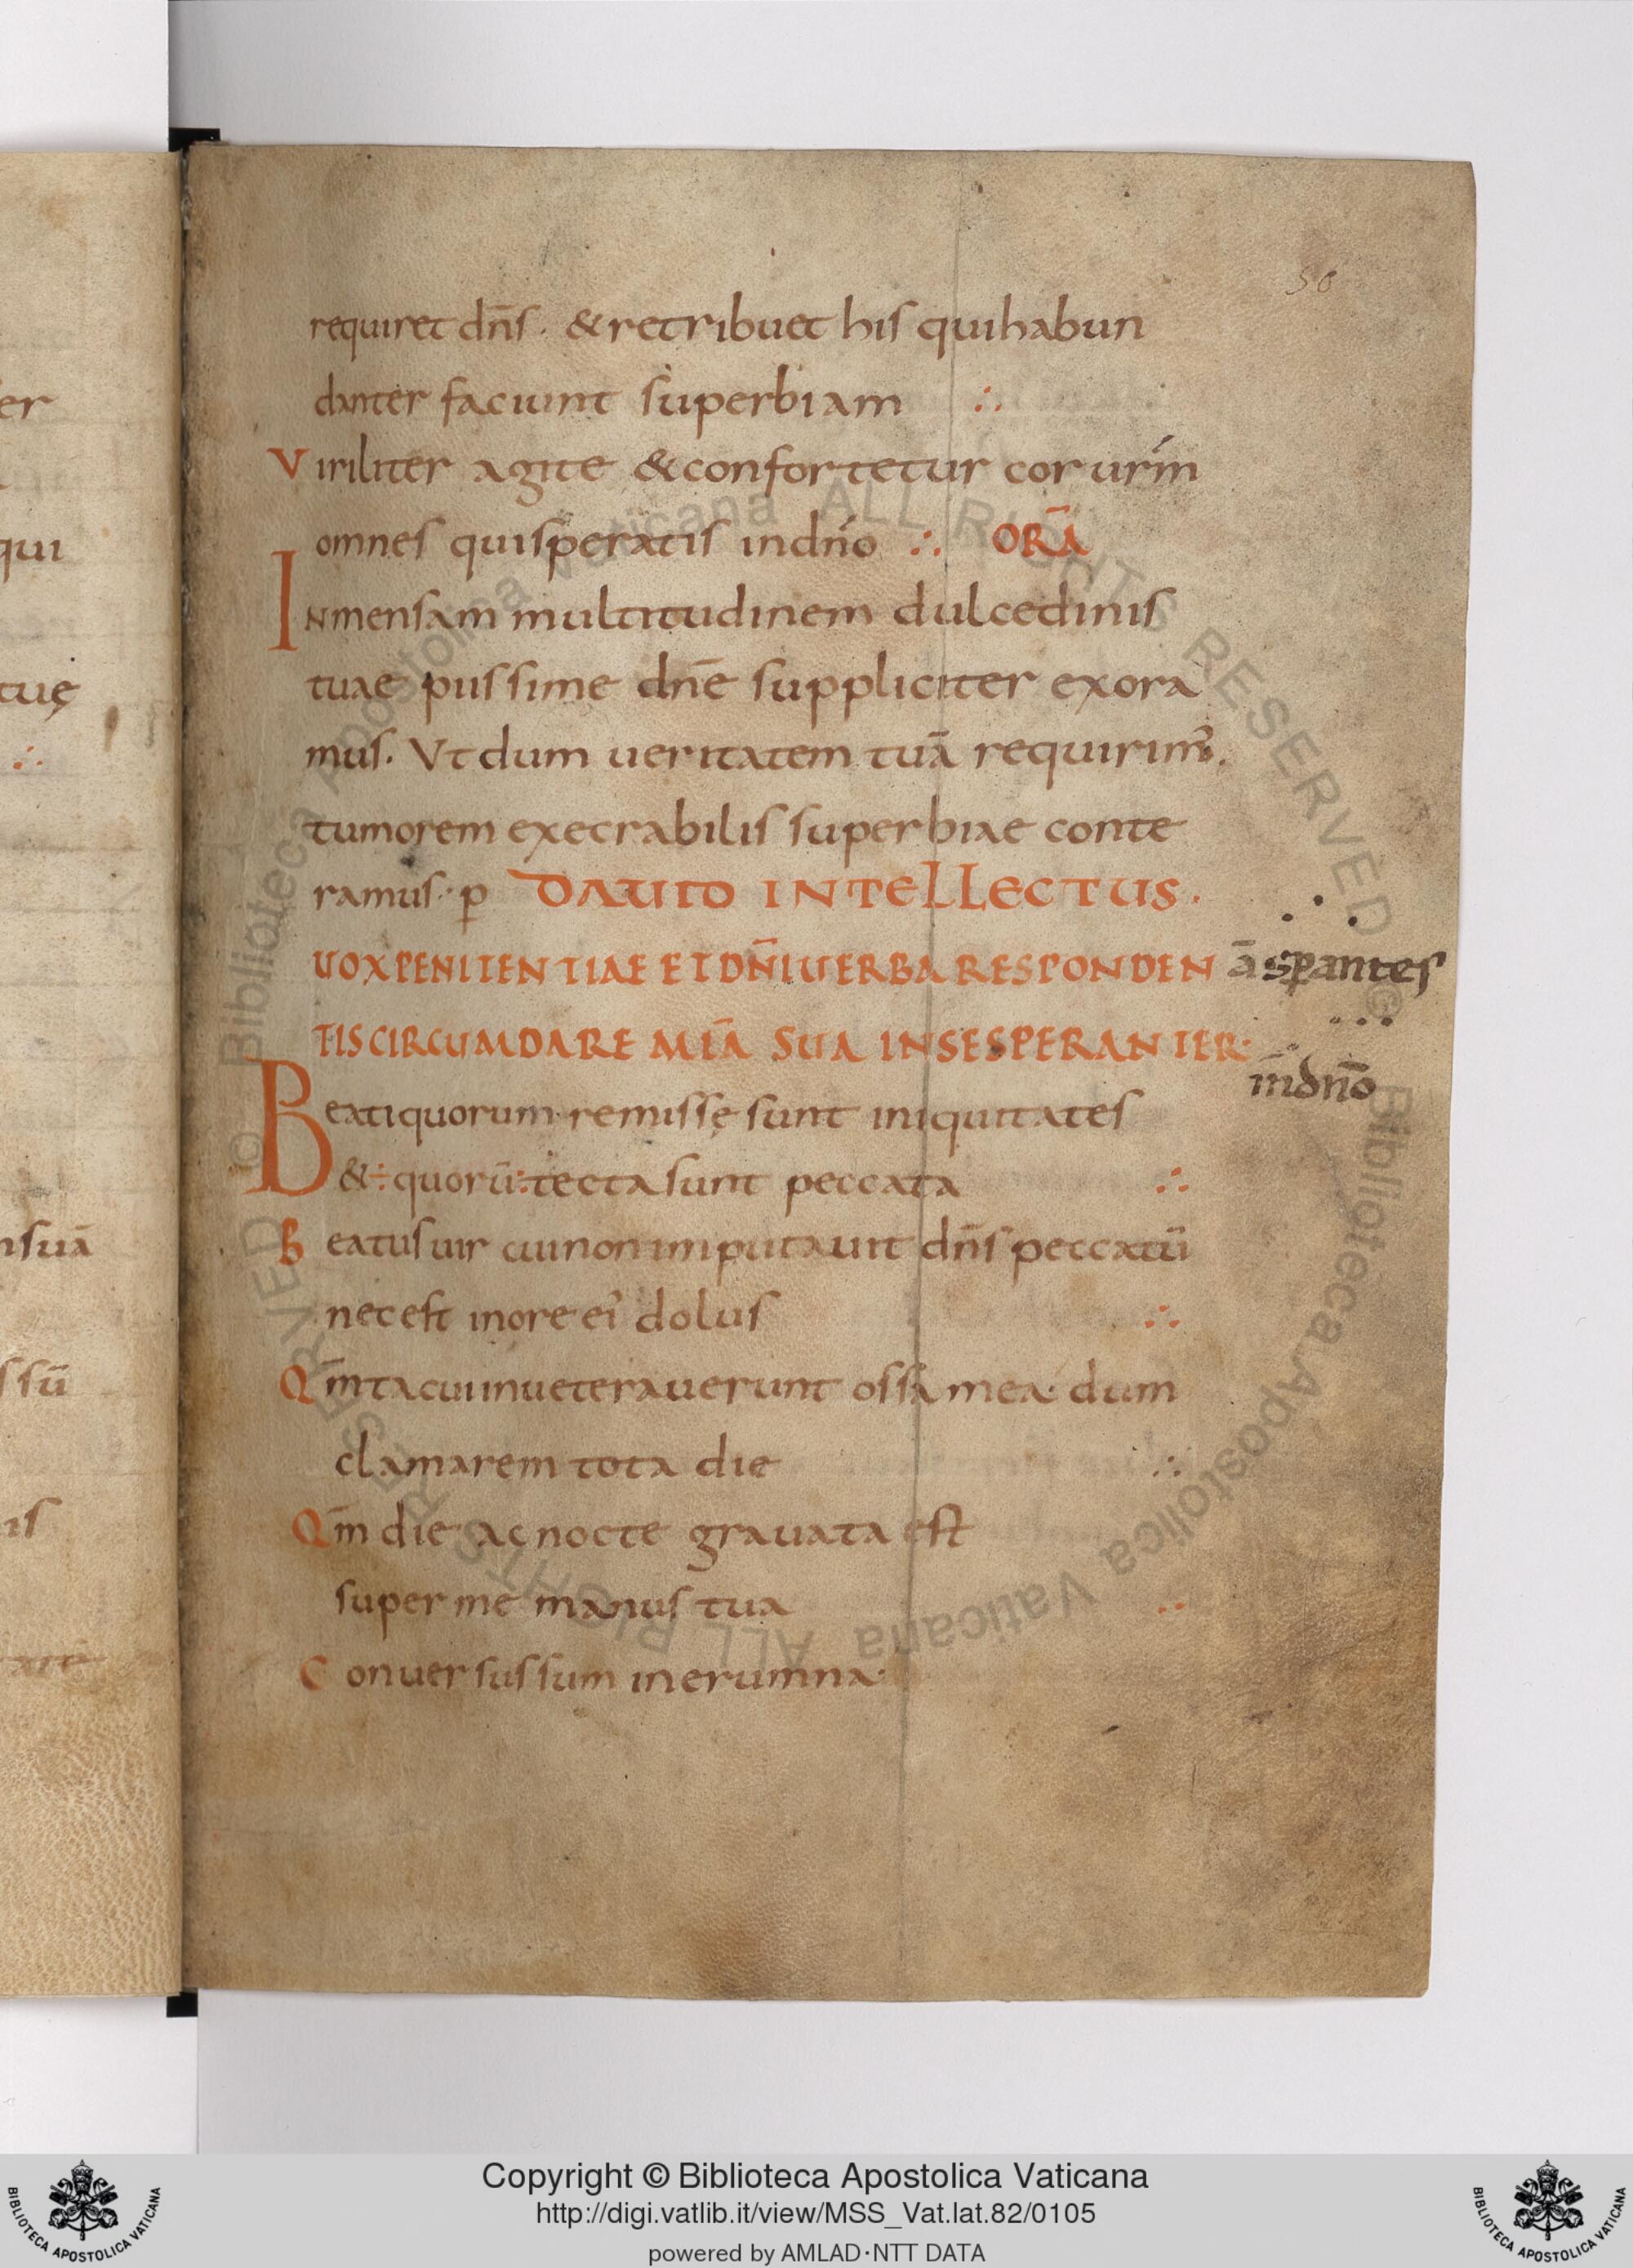 50
requiret dn̄s. & retribuet his qui habun
danter faciunt superbiam ∴
Viriliter agite & confortetur cor ur̄m
omnes qui speratis in dn̄o ∴ ORĀ
INmensam multitudinem dulcedinis
tuae piissime dnē suppliciter exora
mus. Ut dum ueritatem tuā requirim᾽.
tumorem execrabilis superbiae conte
ramus. p̱ DAUID INTELLECTUS.
UOX PENITENTIAE ET DN̄I UERBA RESPONDEN
TIS CIRCUMDARE MĪA SUA IN SE SPERANTER.
ā sp̱antes
in dnō
Beati quorum remissę sunt iniquitates
&÷ quorū: tecta sunt peccata ∴
Beatus uir cui non imputauit dn̄s peccatū
nec est in ore ei᾽ dolus ∴
Qm̄ tacui inueterauerunt ossa mea. dum
clamarem tota die ∴
Qm̄ die ac nocte grauata est
super me manus tua ∴
Conuersus sum in erumna.
er
qui
tuę
∴
nsuā
ssū
is
Copyright © Biblioteca Apostolica Vaticana
http://digi.vatlib.it/view/MSS_Vat.lat.82/0105
powered by AMLAD·NTT DATA
BIBLIOTECA APOSTOLICA VATICANA
BIBLIOTECA APOSTOLICA VATICANA
© Biblioteca Apostolica Vaticana ALL RIGHTS RESERVED
© Biblioteca Apostolica Vaticana ALL RIGHTS RESERVED